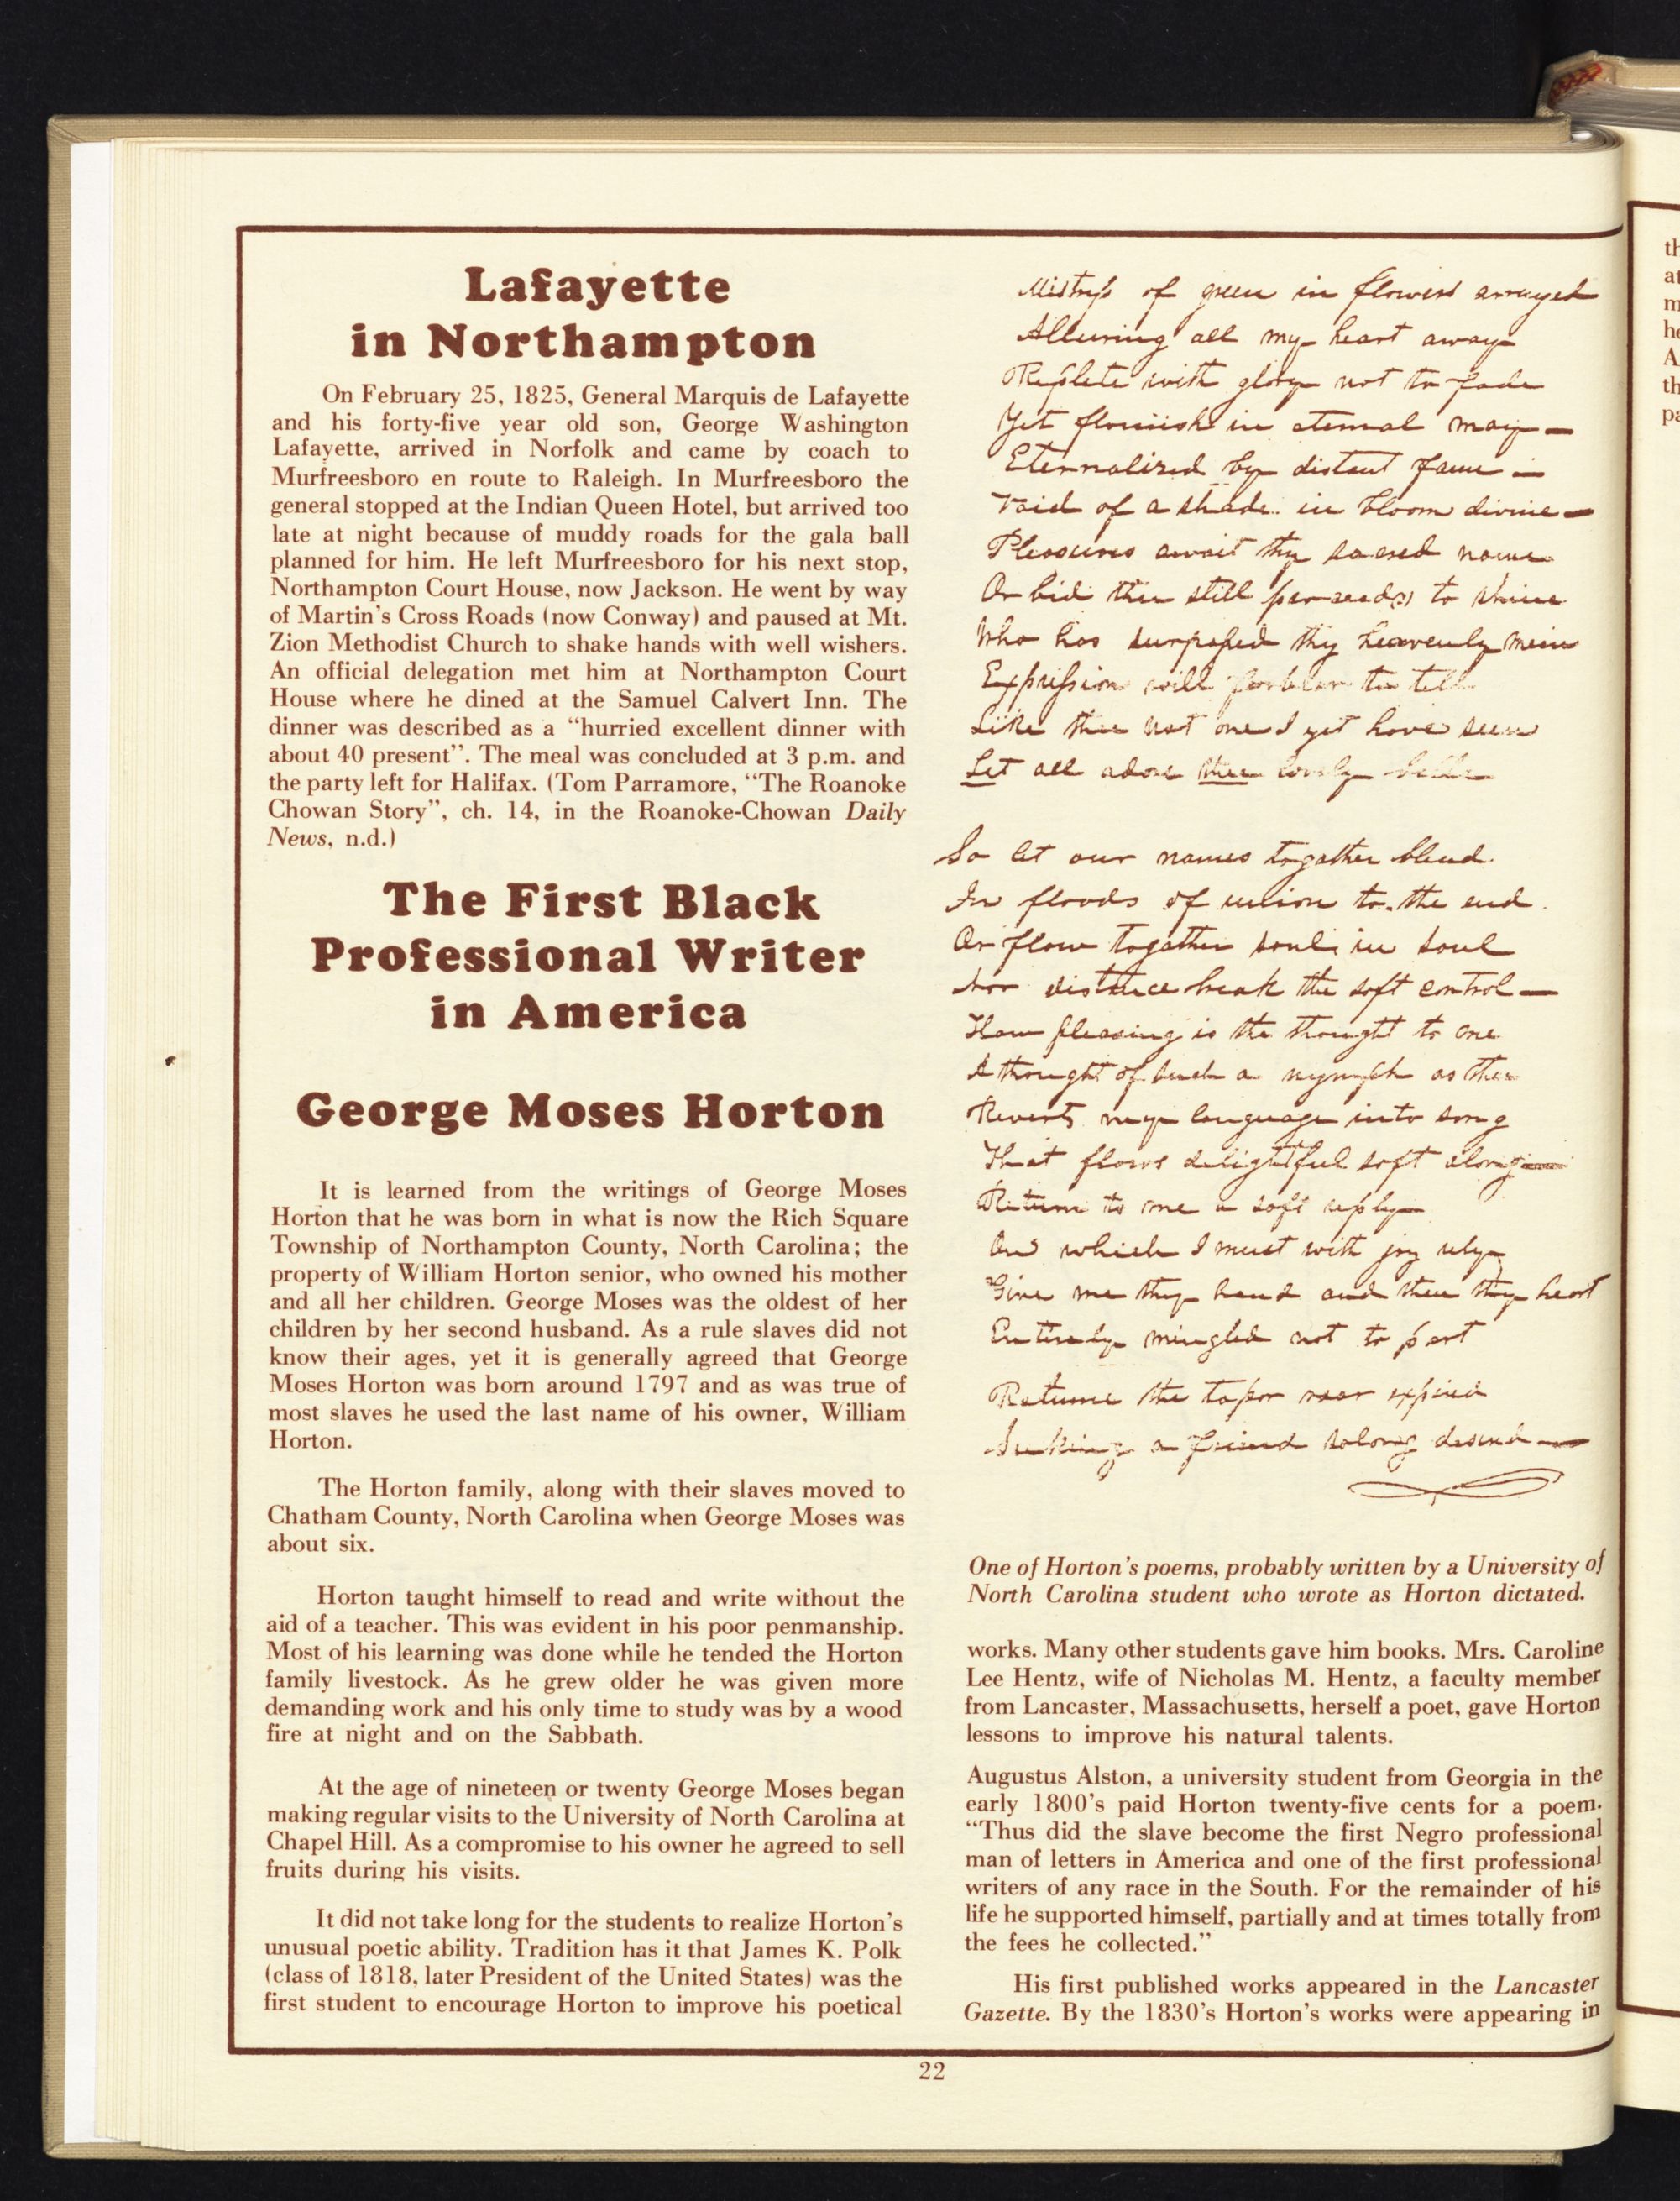 Lafayette
in Northampton
On February 25, 1825, General Marquis de Lafayette
and his forty-five year old son, George Washington
Lafayette, arrived in Norfolk and came by coach to
Murfreesboro en route to Raleigh. In Murfreesboro the
general stopped at the Indian Queen Hotel, but arrived too
late at night because of muddy roads for the gala ball
planned for him. He left Murfreesboro for his next stop,
Northampton Court House, now Jackson. He went by way
of Martin's Cross Roads (now Conway) and paused at Mt.
Zion Methodist Church to shake hands with well wishers.
An official delegation met him at Northampton Court
House where he dined at the Samuel Calvert Inn. The
dinner was described as a “hurried excellent dinner with
about 40 present”. The meal was concluded at 3 p.m. and
the party left for Halifax. (Tom Parramore, “The Roanoke
Chowan Story”, ch. 14, in the Roanoke-Chowan Daily
News, n.d.)
The First Black
Professional Writer
in America
George Moses Horton
It is learned from the writings of George Moses
Horton that he was born in what is now the Rich Square
Township of Northampton County, North Carolina; the
property of William Horton senior, who owned his mother
and all her children. George Moses was the oldest of her
children by her second husband. As a rule slaves did not
know their ages, yet it is generally agreed that George
Moses Horton was born around 1797 and as was true of
most slaves he used the last name of his owner, William
Horton.
The Horton family, along with their slaves moved to
Chatham County, North Carolina when George Moses was
about six.
Horton taught himself to read and write without the
aid of a teacher. This was evident in his poor penmanship.
Most of his learning was done while he tended the Horton
family livestock. As he grew older he was given more
demanding work and his only time to study was by a wood
fire at night and on the Sabbath.
At the age of nineteen or twenty George Moses began
making regular visits to the University of North Carolina at
Chapel Hill. As a compromise to his owner he agreed to sell
fruits during his visits.
It did not take long for the students to realize Horton's
unusual poetic ability. Tradition has it that James K. Polk
(class of 1818, later President of the United States) was the
first student to encourage Horton to improve his poetical
Mistress of green in flowers arrayed
Alluring all my heart away
Replete with glory not to fade
Yet flourish in eternal may—
Eternalised by distant fame—
Void of a shade in bloom divine—
Pleasures await thy sacred name
Or bid thee still to shine
Who has surpassed thy heavenly mein
Expression will forbear to tell
Like thee not one I yet have seen
Let all adore thee lovely belle
So let our names together blend
In floods of union to the end
Or flow together soul in soul
Nor distance break the soft control—
How pleasing is the thought to one
A thought of such a nymph as thee
Reverts my language into song
That flows delightful soft along—
Return to me a soft reply
On which I must with joy rely
Give me thy hand and then thy heart
Entirely mingled not to part
the taper near expired
Seeking a friend so long desired—
One of Horton's poems, probably written by a University of
North Carolina student who wrote as Horton dictated.
works. Many other students gave him books. Mrs. Caroline
Lee Hentz, wife of Nicholas M. Hentz, a faculty member
from Lancaster, Massachusetts, herself a poet, gave Horton
lessons to improve his natural talents.
Augustus Alston, a university student from Georgia in the
early 1800's paid Horton twenty-five cents for a poem.
“Thus did the slave become the first Negro professional
man of letters in America and one of the first professional
writers of any race in the South. For the remainder of his
life he supported himself, partially and at times totally from
the fees he collected.”
His first published works appeared in the Lancaster
Gazette. By the 1830's Horton's works were appearing in
22